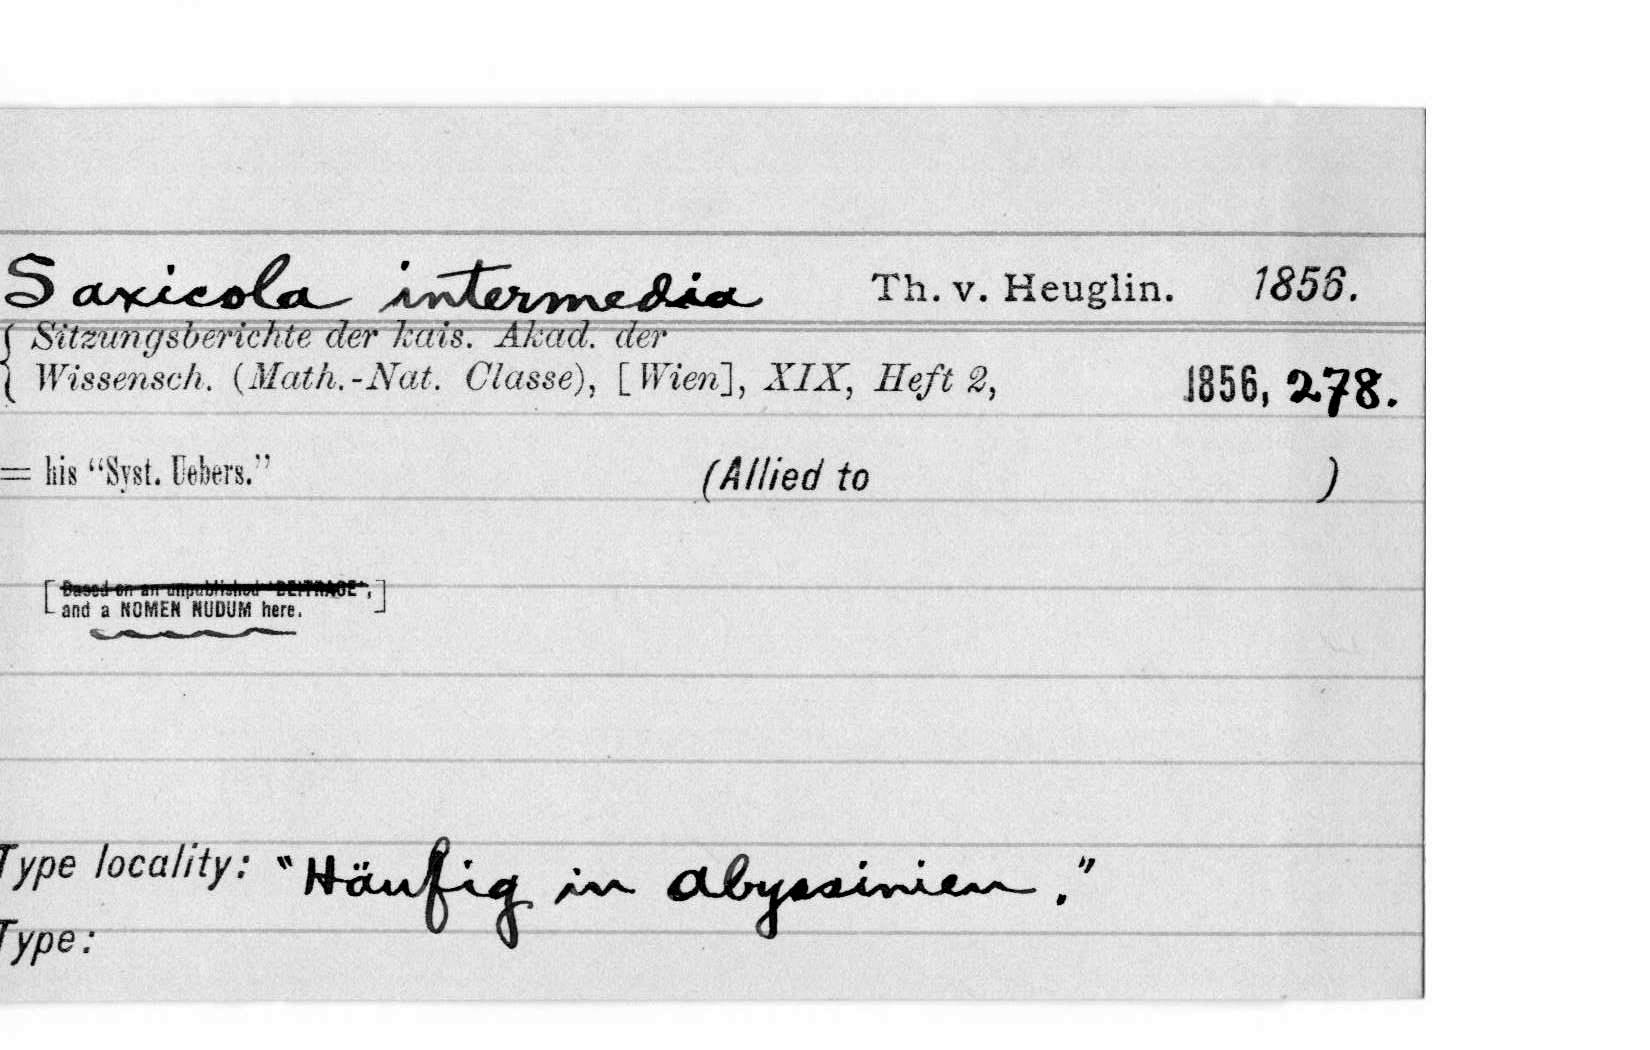 Saxicola intermedia Th. v. Heuglin. 1856.
{ Sitzungsberichte der kais. Akad. der
Wissensch. (Math.-Nat. Classe), [Wien], XIX, Heft 2, 1856, 278.
= his “Syst. Uebers.” (Allied to )
[ Based on an unpublished "BEITRAGE",
and a NOMEN NUDUM here. ]
Type locality: "Häufig in Abyssinien."
Type: